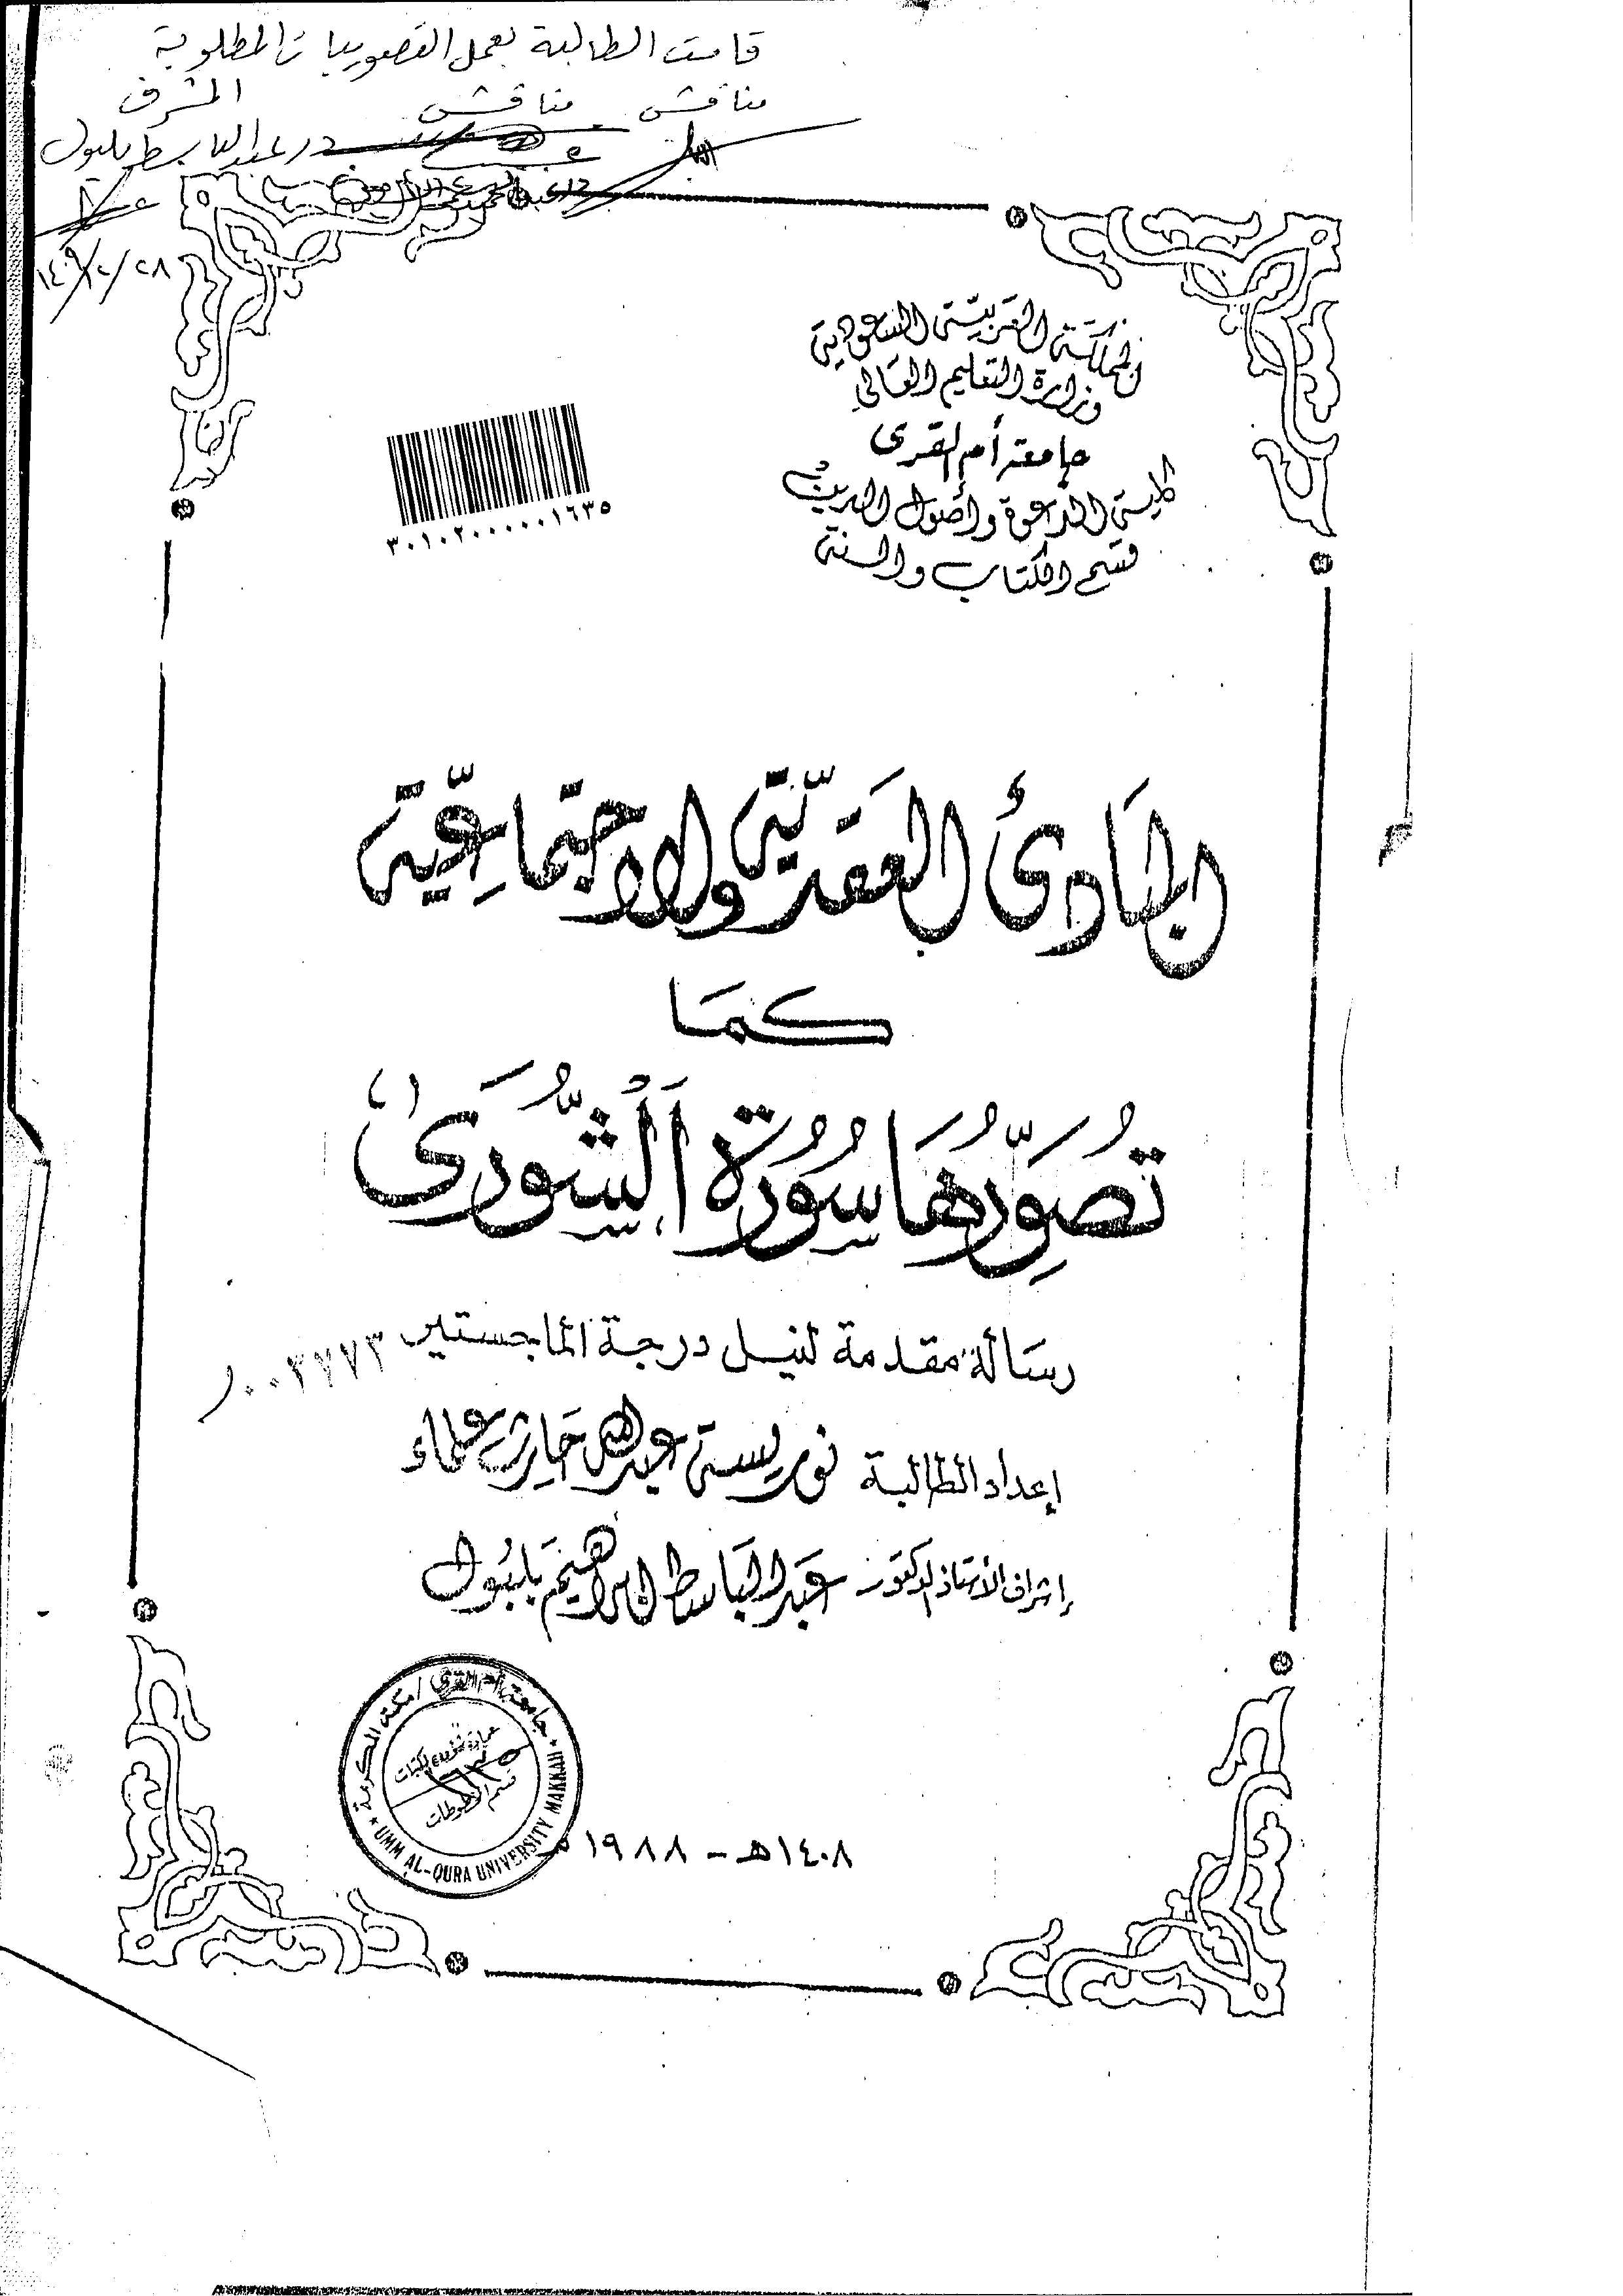 قامت الطالبة بعمل التصويبات المطلوبة
مناقش مناقش المشرف
د. عبد الباسط بلبول
المملكة العربية السعودية
وزارة التعليم العالي
جامعة أم القرى
كلية الدعوة وأصول الدين
قسم الكتاب والسنة
٣٠١٠٢٠٠٠٠٠١٦٣٥
المبادئ العقدية والاجتماعية
كما
تُصَوِّرُهَا سُورَة الشُّورَى
رسالة مقدمة لنيل درجة الماجستير
٠٠٢٧٧٣
إعداد الطالبة نور يستي عبد الله حارث علماء
إشراف الأستاذ الدكتور عبد الباسط إبراهيم بلبول
جامعة أم القرى / مكة المكرمة
عمادة شؤون المكتبات
قسم المخطوطات
UMM AL-QURA UNIVERSITY MAKKAH
١٤٠٨هـ - ١٩٨٨م